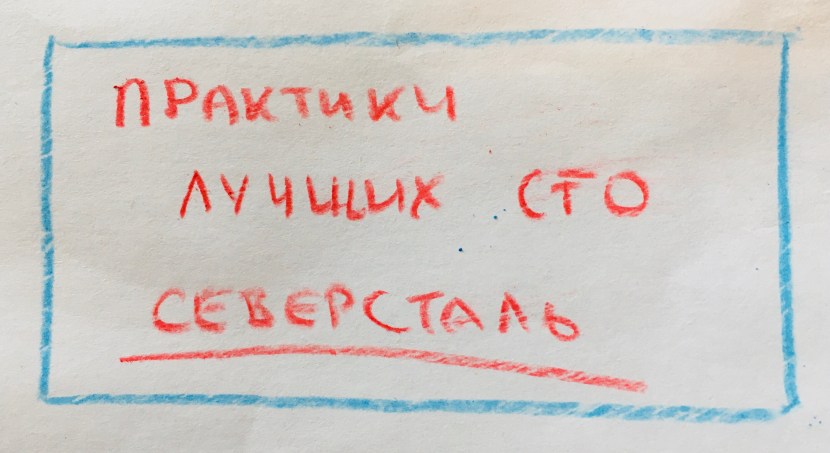 ПРАКТИКИ
ЛУЧШИХ СТО
СЕВЕРСТАЛЬ